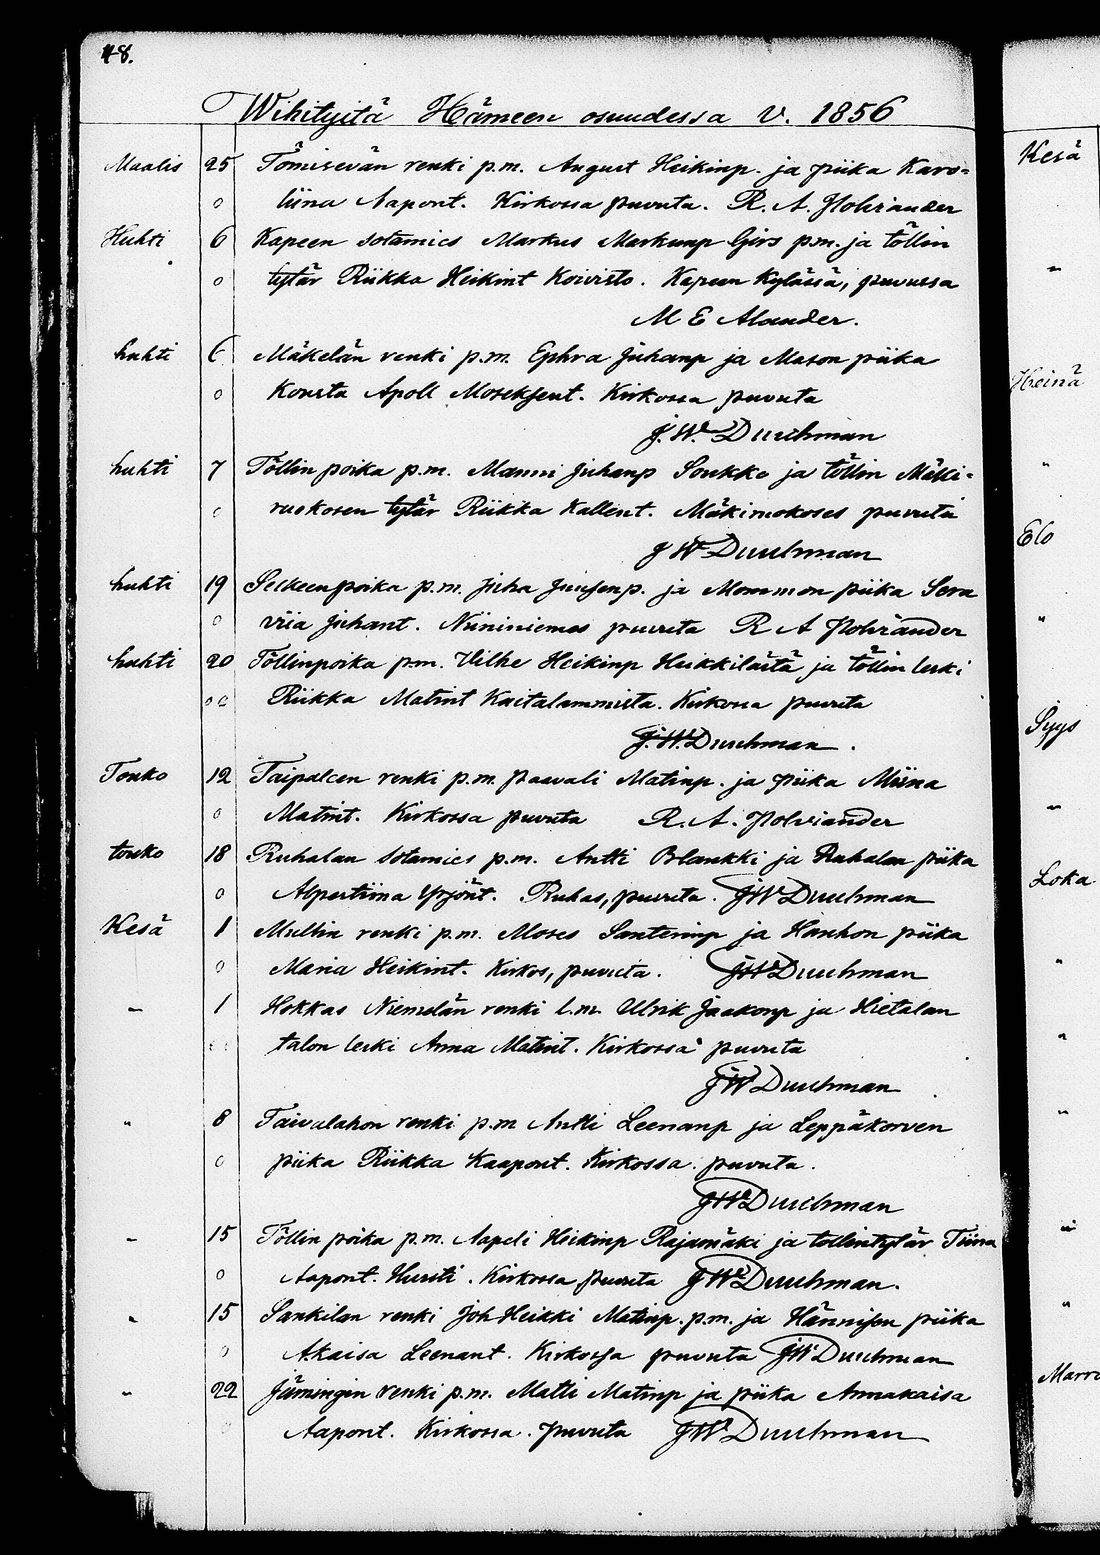 48.
Wihityitä Hämeen osuudessa v. 1856
Maalis 25 Tömisevän renki p.m. August Heikinp. ja piika Karo-
o liina Aapont. Kirkossa puvuta. R. A. Polviander
Huhti 6 Kapeen sotamies Markus Markunp Girs p.m. ja töllin
o tytär Riikka Heikint Koivisto. Kapeen Kylässä, puvussa
M E Alander.
huhti 6 Mäkelän renki p.m. Ephra Juhanp ja Mason piika
o Konsta Apoll Moseksent. Kirkossa puvuta
J. W. Duuhman
huhti 7 Töllin poika p.m. Manni Juhanp Soukko ja töllin Mäki-
o ruokosen tytär Riikka Kallent. Mäkiruokoses puvuta
J W Duuhman
huhti 19 Selkeenpoika p.m. Juha Juusenp. ja Mommon piika Sera
o viia Juhant. Niininiemes puvuta R A Polviander
huhti 20 Töllinpoika p.m. Vilhe Heikinp Heikkilästä ja töllin leski
oo Riikka Matint Kaitalammista. Kirkossa puvuta
J. W. Duuhman.
Touko 12 Taipaleen renki p.m. Paavali Matinp. ja piika Miina
o Matint. Kirkossa puvuta R. A. Polviander
touko 18 Ruhalan sotamies p.m. Antti Blankki ja Ruhalan piika
o Alpertiina Yrjönt. Ruhas, puvuta. JW Duuhman
Kesä 1 Mullin renki p.m. Moses Santerinp ja Hanhon piika
o Maria Heikint. Kirkos, puvuta. JW Duuhman
– 1 Hokkas Niemelän renki l.m. Ulrik Jaakonp ja Hietalan
talon leski Anna Matint. Kirkossa puvuta
JW Duuhman
" 8 Taivalahon renki p.m Antti Leenanp ja Leppäkorven
o piika Riikka Kaapont. Kirkossa. puvuta.
JW Duuhman
– 15 Töllin poika p.m. Aapeli Heikinp Rajamäki ja tollintytär Tiina
o Aapont. Hursti. Kirkossa puvuta JW Duuhman.
" 15 Sankilan renki Joh Heikki Matinp. p.m. ja Hännisen piika
o A.kaisa Leenant. Kirkossa puvuta JW Duuhman
" 22 Jämingin renki p.m. Matti Matinp ja piika Annakaisa
o Aapont. Kirkossa. puvuta JW Duuhman
Kesä
"
Heinä
"
Elo
"
Syys
"
Loka
"
"
"
"
"
Marra